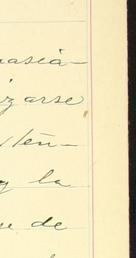 nasiá-
izarse
sten-
y la
ue de